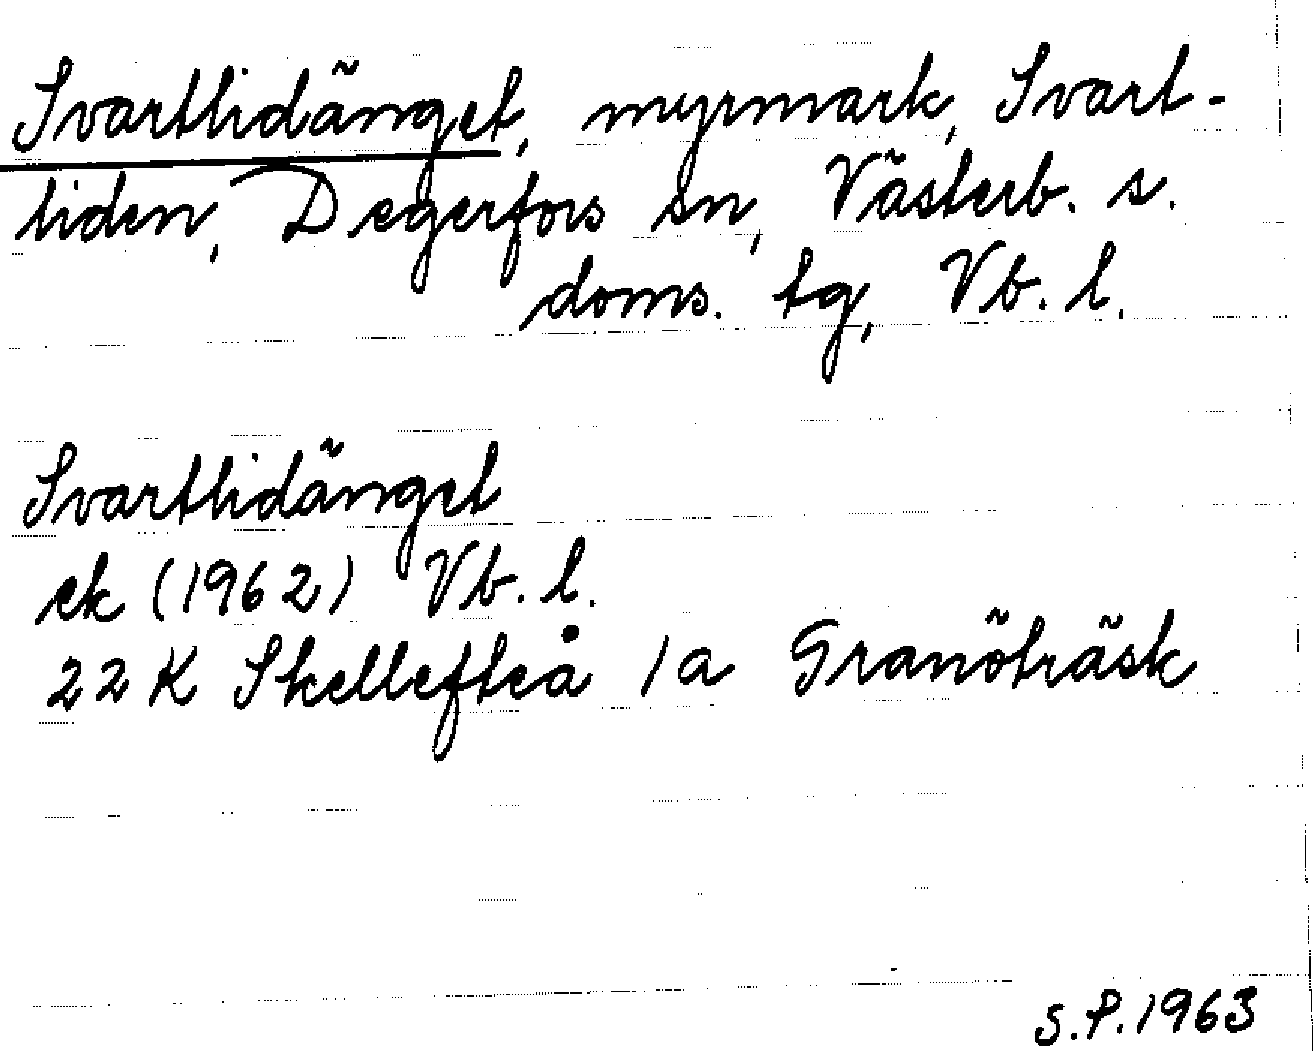 Svartlidänget, myrmark, Svart-
liden, Degerfors sn, Västerb. s.
doms. tg, Vb. l.
Svartlidänget
ek (1962) Vb. l.
22 K Skellefteå 1a Granöträsk
S.P. 1963